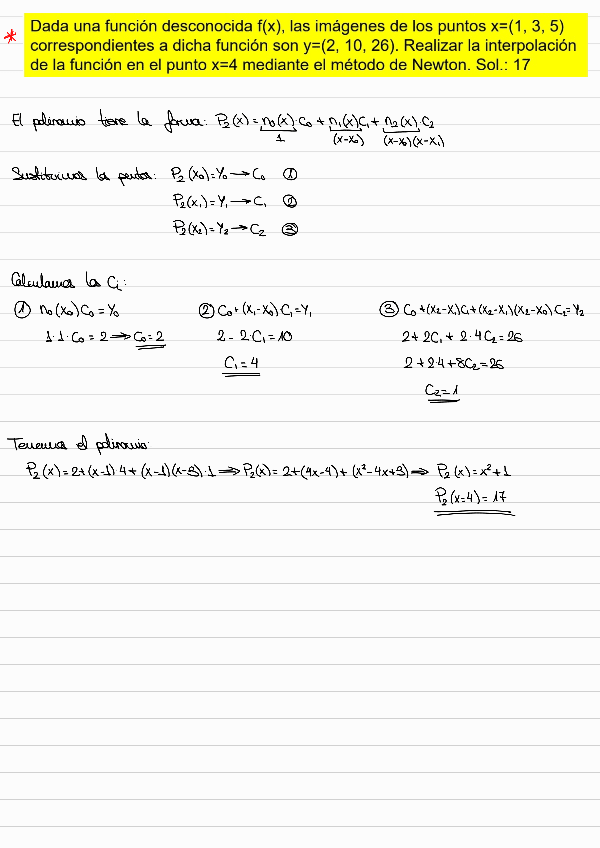 Dada una función desconocida f(x), las imágenes de los puntos x=(1, 3, 5)
correspondientes a dicha función son y=(2, 10, 26). Realizar la interpolación
de la función en el punto x=4 mediante el método de Newton. Sol.: 17
El polinomio tiene la forma: P₂(x) = n₀(x)·C₀ + n₁(x)C₁ + n₂(x)·C₂
1 (x-x₀) (x-x₀)(x-x₁)
Sustituimos los puntos: P₂(x₀)=y₀ → C₀ ①
P₂(x₁)=y₁ → C₁ ②
P₂(x₂)=y₂ → C₂ ③
Calculamos los Cᵢ:
① n₀(x₀)C₀ = y₀ ② C₀+(x₁-x₀)C₁=y₁ ③ C₀+(x₂-x₁)C₁+(x₂-x₁)(x₂-x₀)C₂=y₂
1·1·C₀ = 2 ⟹ C₀=2 2 - 2·C₁=10 2+2C₁+ 2·4C₂=26
C₁=4 2+2·4+8C₂=26
C₂=1
Tenemos el polinomio:
P₂(x)=2+(x-1)·4+(x-1)(x-3)·1 ⟹ P₂(x)= 2+(4x-4)+(x²-4x+3) ⟹ P₂(x)=x²+1
P₂(x=4)=17